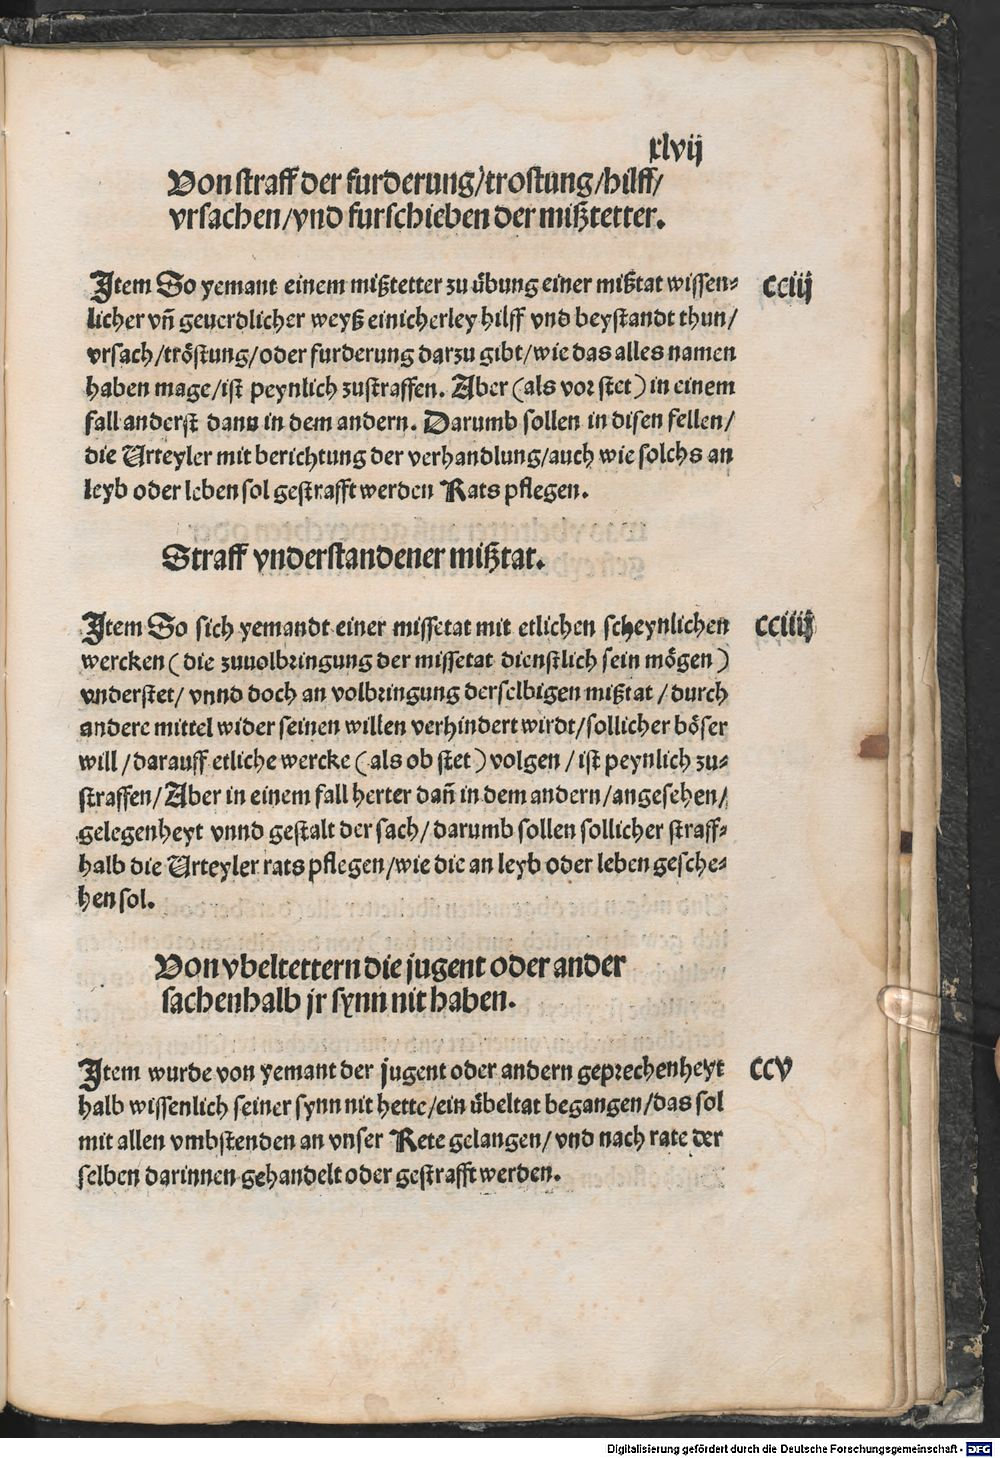 xlvij
Von straff der furderung/trostung/hilff/
vrsachen/vnd furschieben der mißtetter.
Jtem So yemant einem mißtetter zu übung einer mißtat wissen- cciij
licher vñ geuerdlicher weyß einicherley hilff vnd beystandt thun/
vrsach/tröstung/oder furderung darzu gibt/wie das alles namen
haben mage/ist peynlich zustraffen. Aber (als vor stet) in einem
fall anderst dann in dem andern. Darumb sollen in disen fellen/
die Urteyler mit berichtung der verhandlung/auch wie solchs an
leyb oder leben sol gestrafft werden Rats pflegen.
Straff vnderstandener mißtat.
Jtem So sich yemandt einer missetat mit etlichen scheynlichen cciiij
wercken (die zuuolbringung der missetat dienstlich sein mögen)
vnderstet/ vnnd doch an volbringung derselbigen mißtat/durch
andere mittel wider seinen willen verhindert wirdt/sollicher böser
will/darauff etliche wercke (als ob stet) volgen/ist peynlich zu-
straffen/Aber in einem fall herter dañ in dem andern/angesehen/
gelegenheyt vnnd gestalt der sach/darumb sollen sollicher straff-
halb die Urteyler rats pflegen/wie die an leyb oder leben gesche-
hen sol.
Von vbeltettern die jugent oder ander
sachenhalb jr synn nit haben.
Jtem wurde von yemant der jugent oder andern geprechenheyt ccv
halb wissenlich seiner synn nit hette/ein übeltat begangen/das sol
mit allen vmbstenden an vnser Rete gelangen/vnd nach rate der
selben darinnen gehandelt oder gestrafft werden.
Digitalisierung gefördert durch die Deutsche Forschungsgemeinschaft - DFG